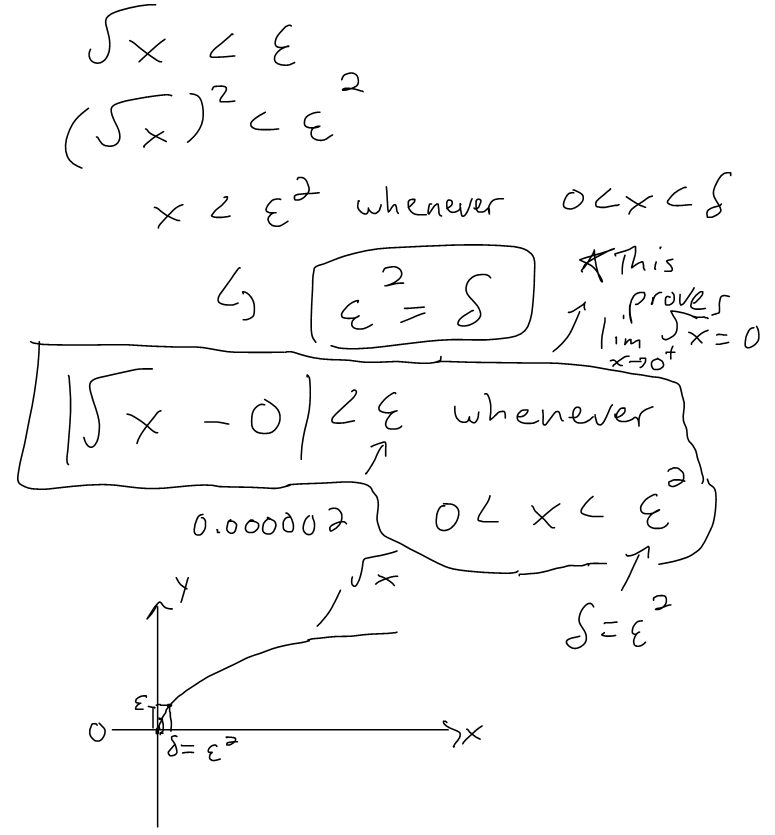 √x < ε
(√x)² < ε²
x < ε² whenever 0 < x < δ
↳ ε² = δ
★ This
proves
lim √x = 0
x→0⁺
|√x - 0| < ε whenever
0 < x < ε²
0.000002
δ = ε²
√x
y
ε
0
x
δ = ε²